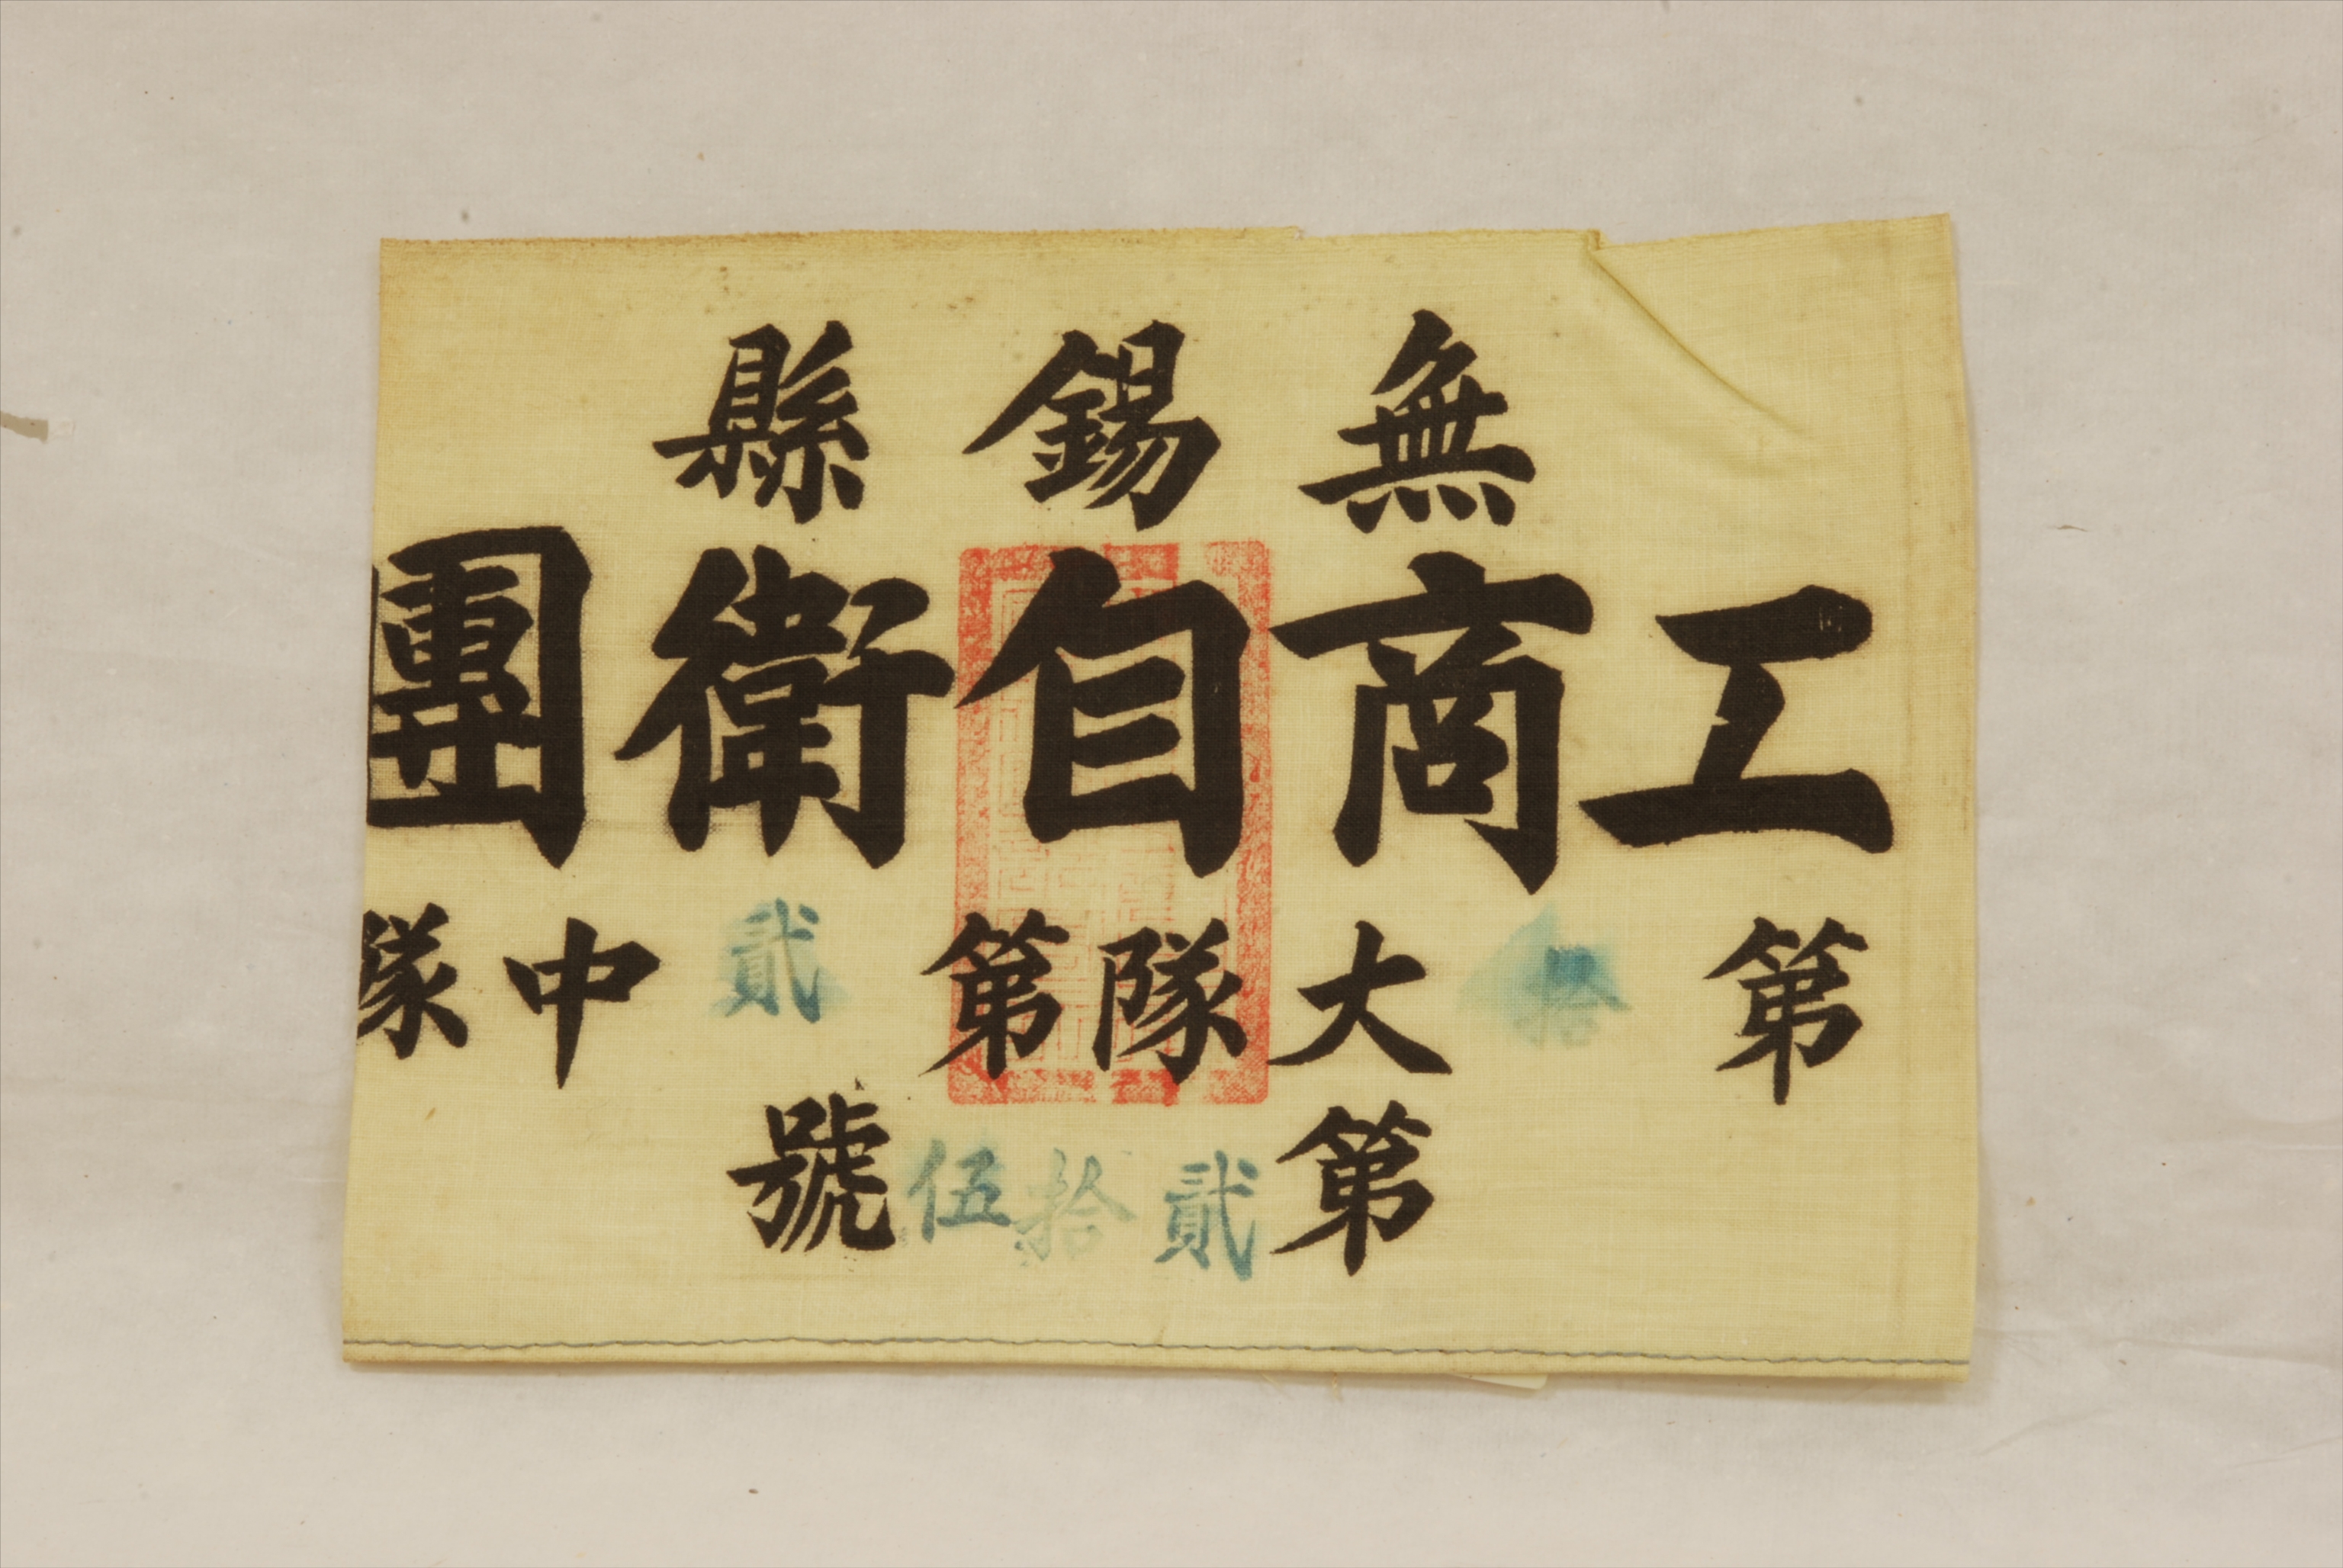 無錫縣
工商自衛團
第拾大隊第貳中隊
第貳拾伍號